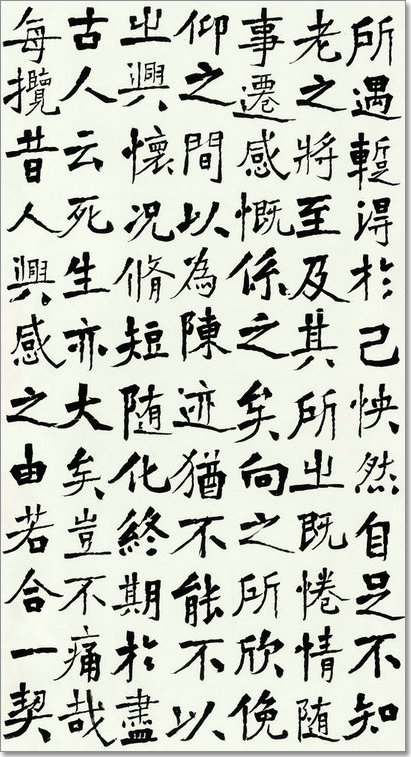 所遇蹔得於己怏然自足不知
老之將至及其所之既惓情随
事遷感慨係之矣向之所欣俛
仰之間以為陳迹猶不能不以
之興懷况脩短随化終期於盡
古人云死生亦大矣豈不痛哉
每攬昔人興感之由若合一契